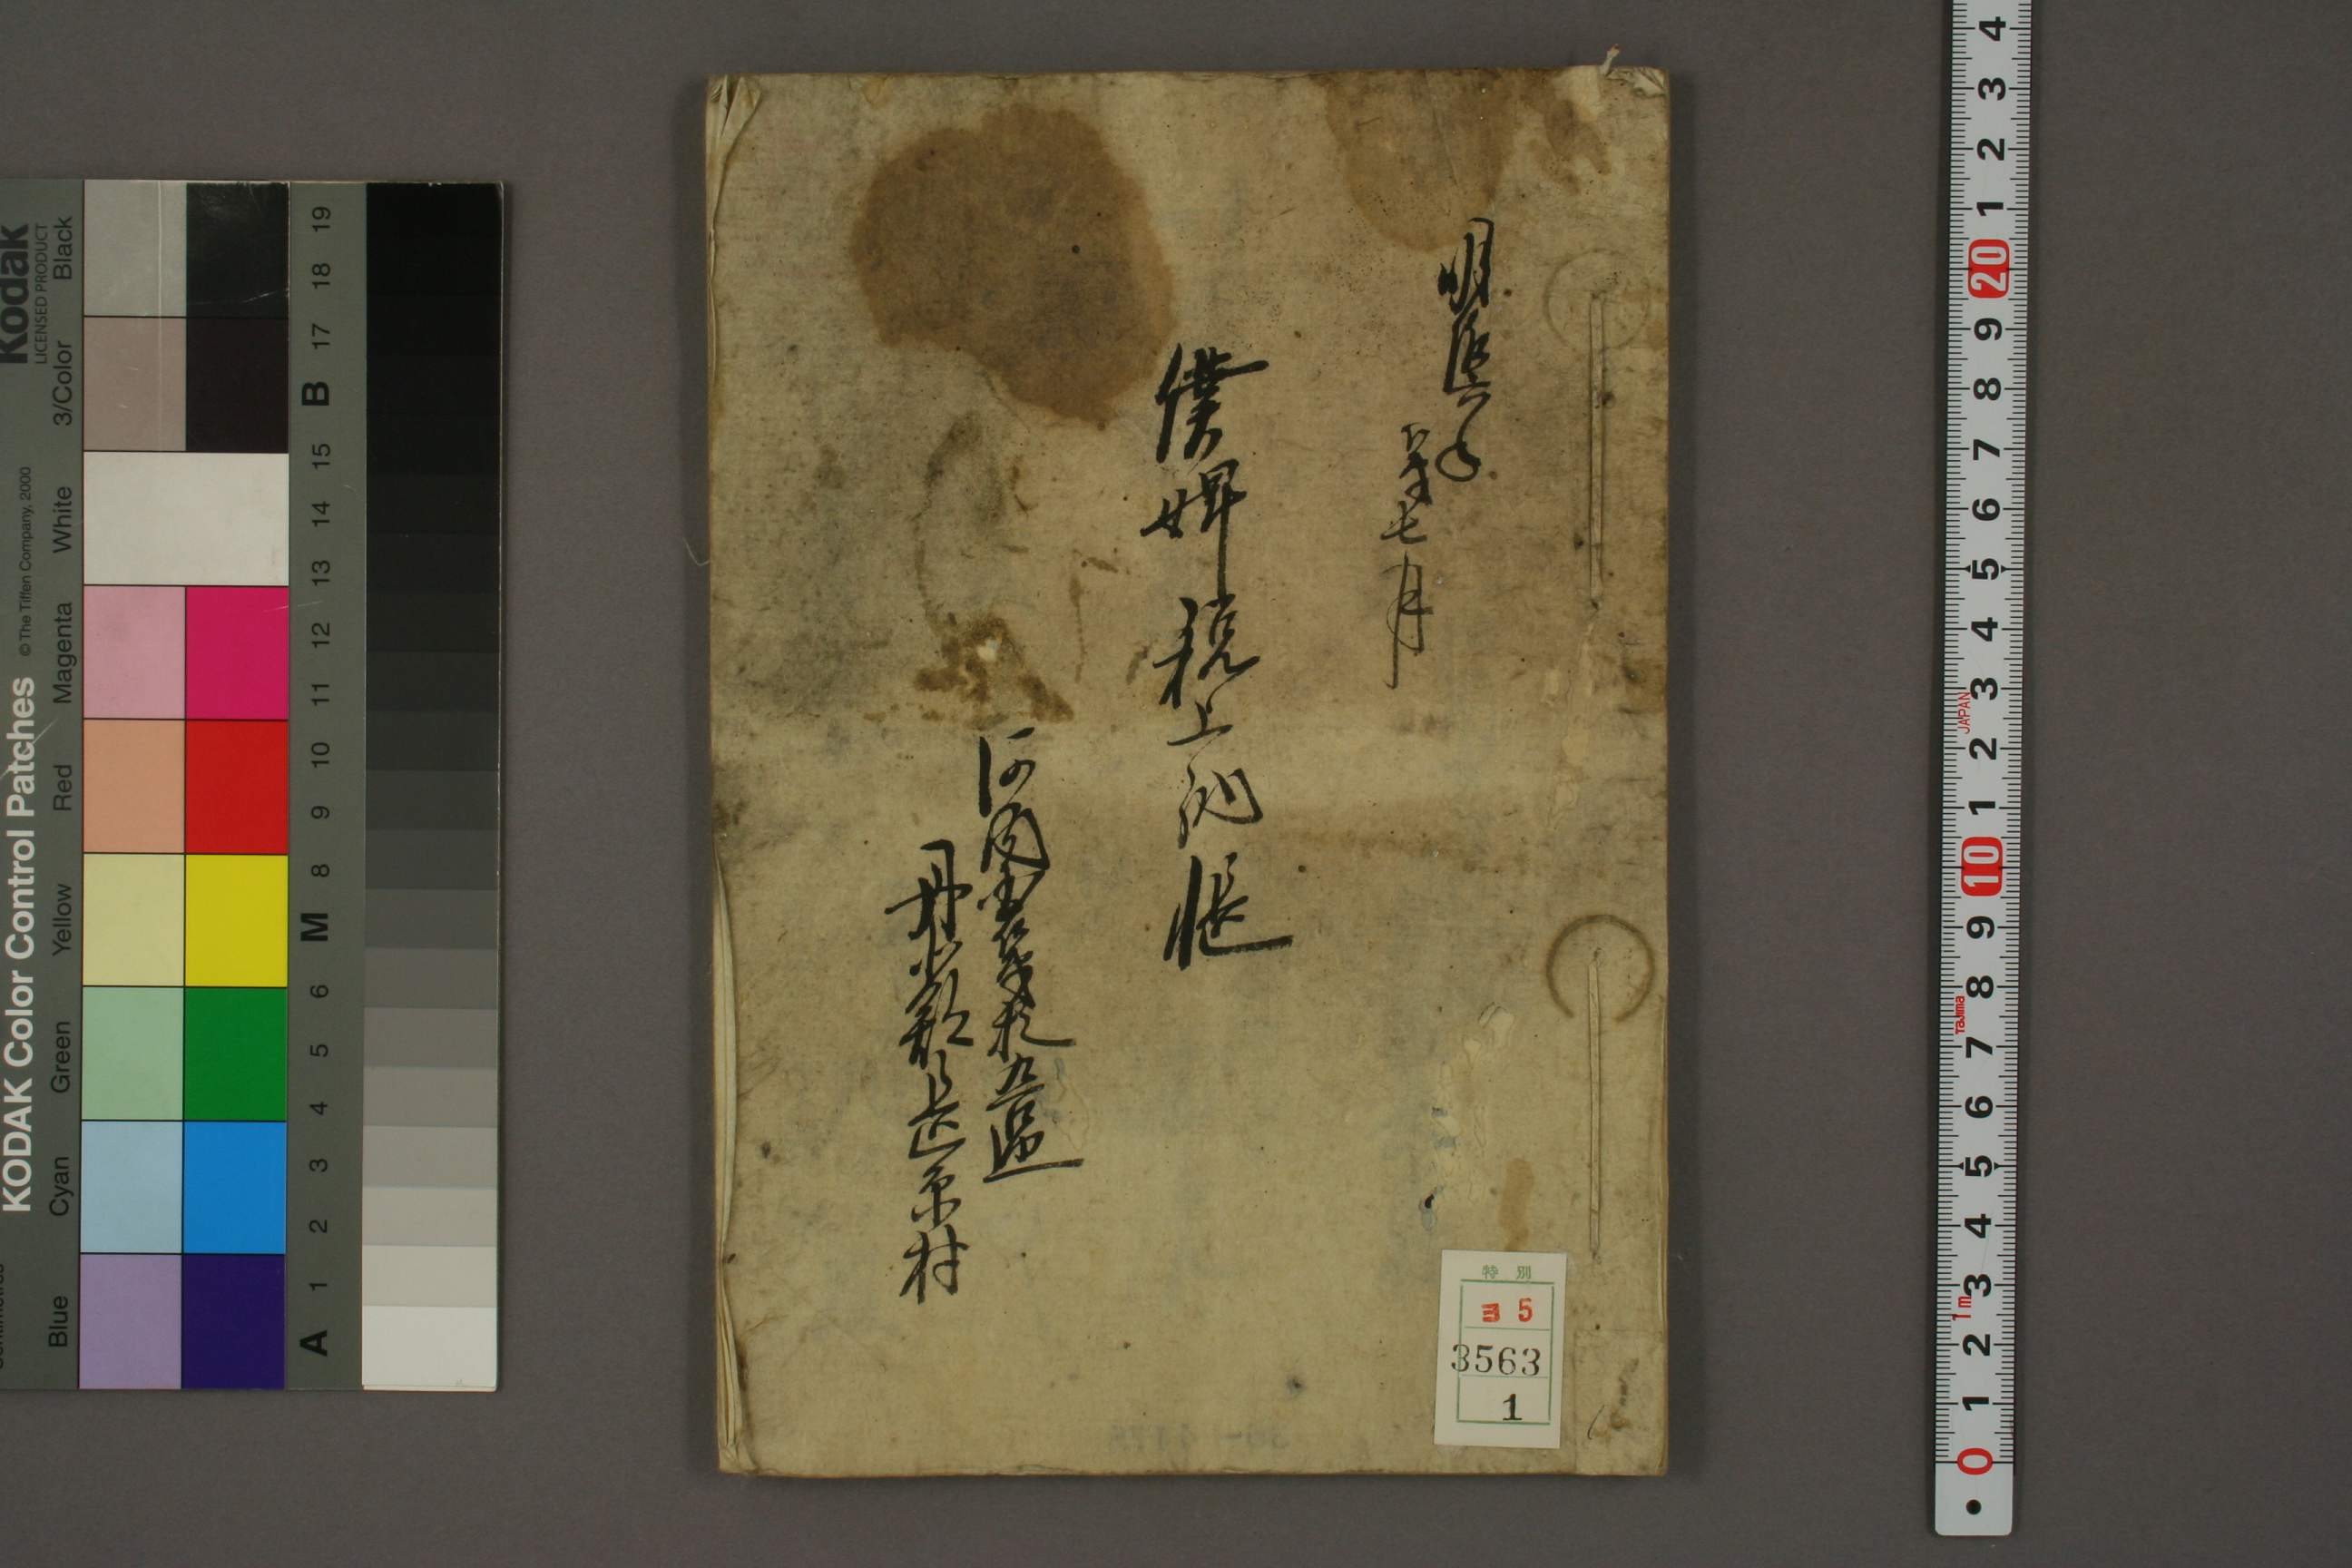 明治六年
七月
僕婢税上納帳
河内
丹北郡
村
特別
ヨ5
3563
1
KODAK Color Control Patches
© The Tiffen Company, 2000
Kodak
LICENSED PRODUCT
Blue Cyan Green Yellow Red Magenta White 3/Color Black
A 1 2 3 4 5 6 M 8 9 10 11 12 13 14 15 B 17 18 19
0 1 2 3 4 5 6 7 8 9 10 1 2 3 4 5 6 7 8 9 20 1 2 3 4
1m
Tajima
JAPAN